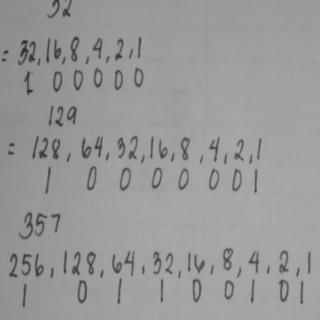 32
= 32, 16, 8, 4, 2, 1
1 0 0 0 0 0
129
= 128, 64, 32, 16, 8, 4, 2, 1
1 0 0 0 0 0 0 1
357
256, 128, 64, 32, 16, 8, 4, 2, 1
1 0 1 1 0 0 1 0 1